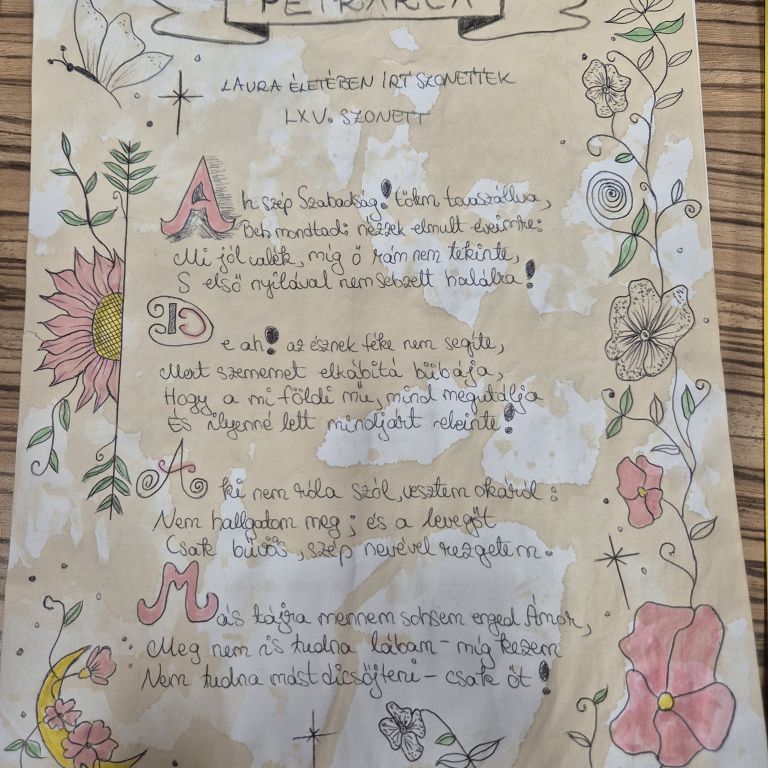 PETRARCA
LAURA ÉLETÉBEN ÍRT SZONETTEK
LXV. SZONETT
Ah szép Szabadság! tőlem tovaszállva,
Beh mondtad: nézzek elmult éveimre:
Mi jól valék, míg ő rám nem tekinte,
S első nyilával nem sebzett halálba!
De ah! az észnek féke nem segite,
Mert szememet elkábitá bűbája,
Hogy a mi földi mű, mind megutálja
És ilyenné lett mindjárt eleinte!
A ki nem róla szól, vesztem okáról:
Nem hallgatom meg; és a levegőt
Csak bűvös, szép nevével rezgetem.
Más tájra mennem sohsem enged Ámor,
Meg nem is tudna lábam - míg kezem
Nem tudna mást dicsőjteni - csak őt!